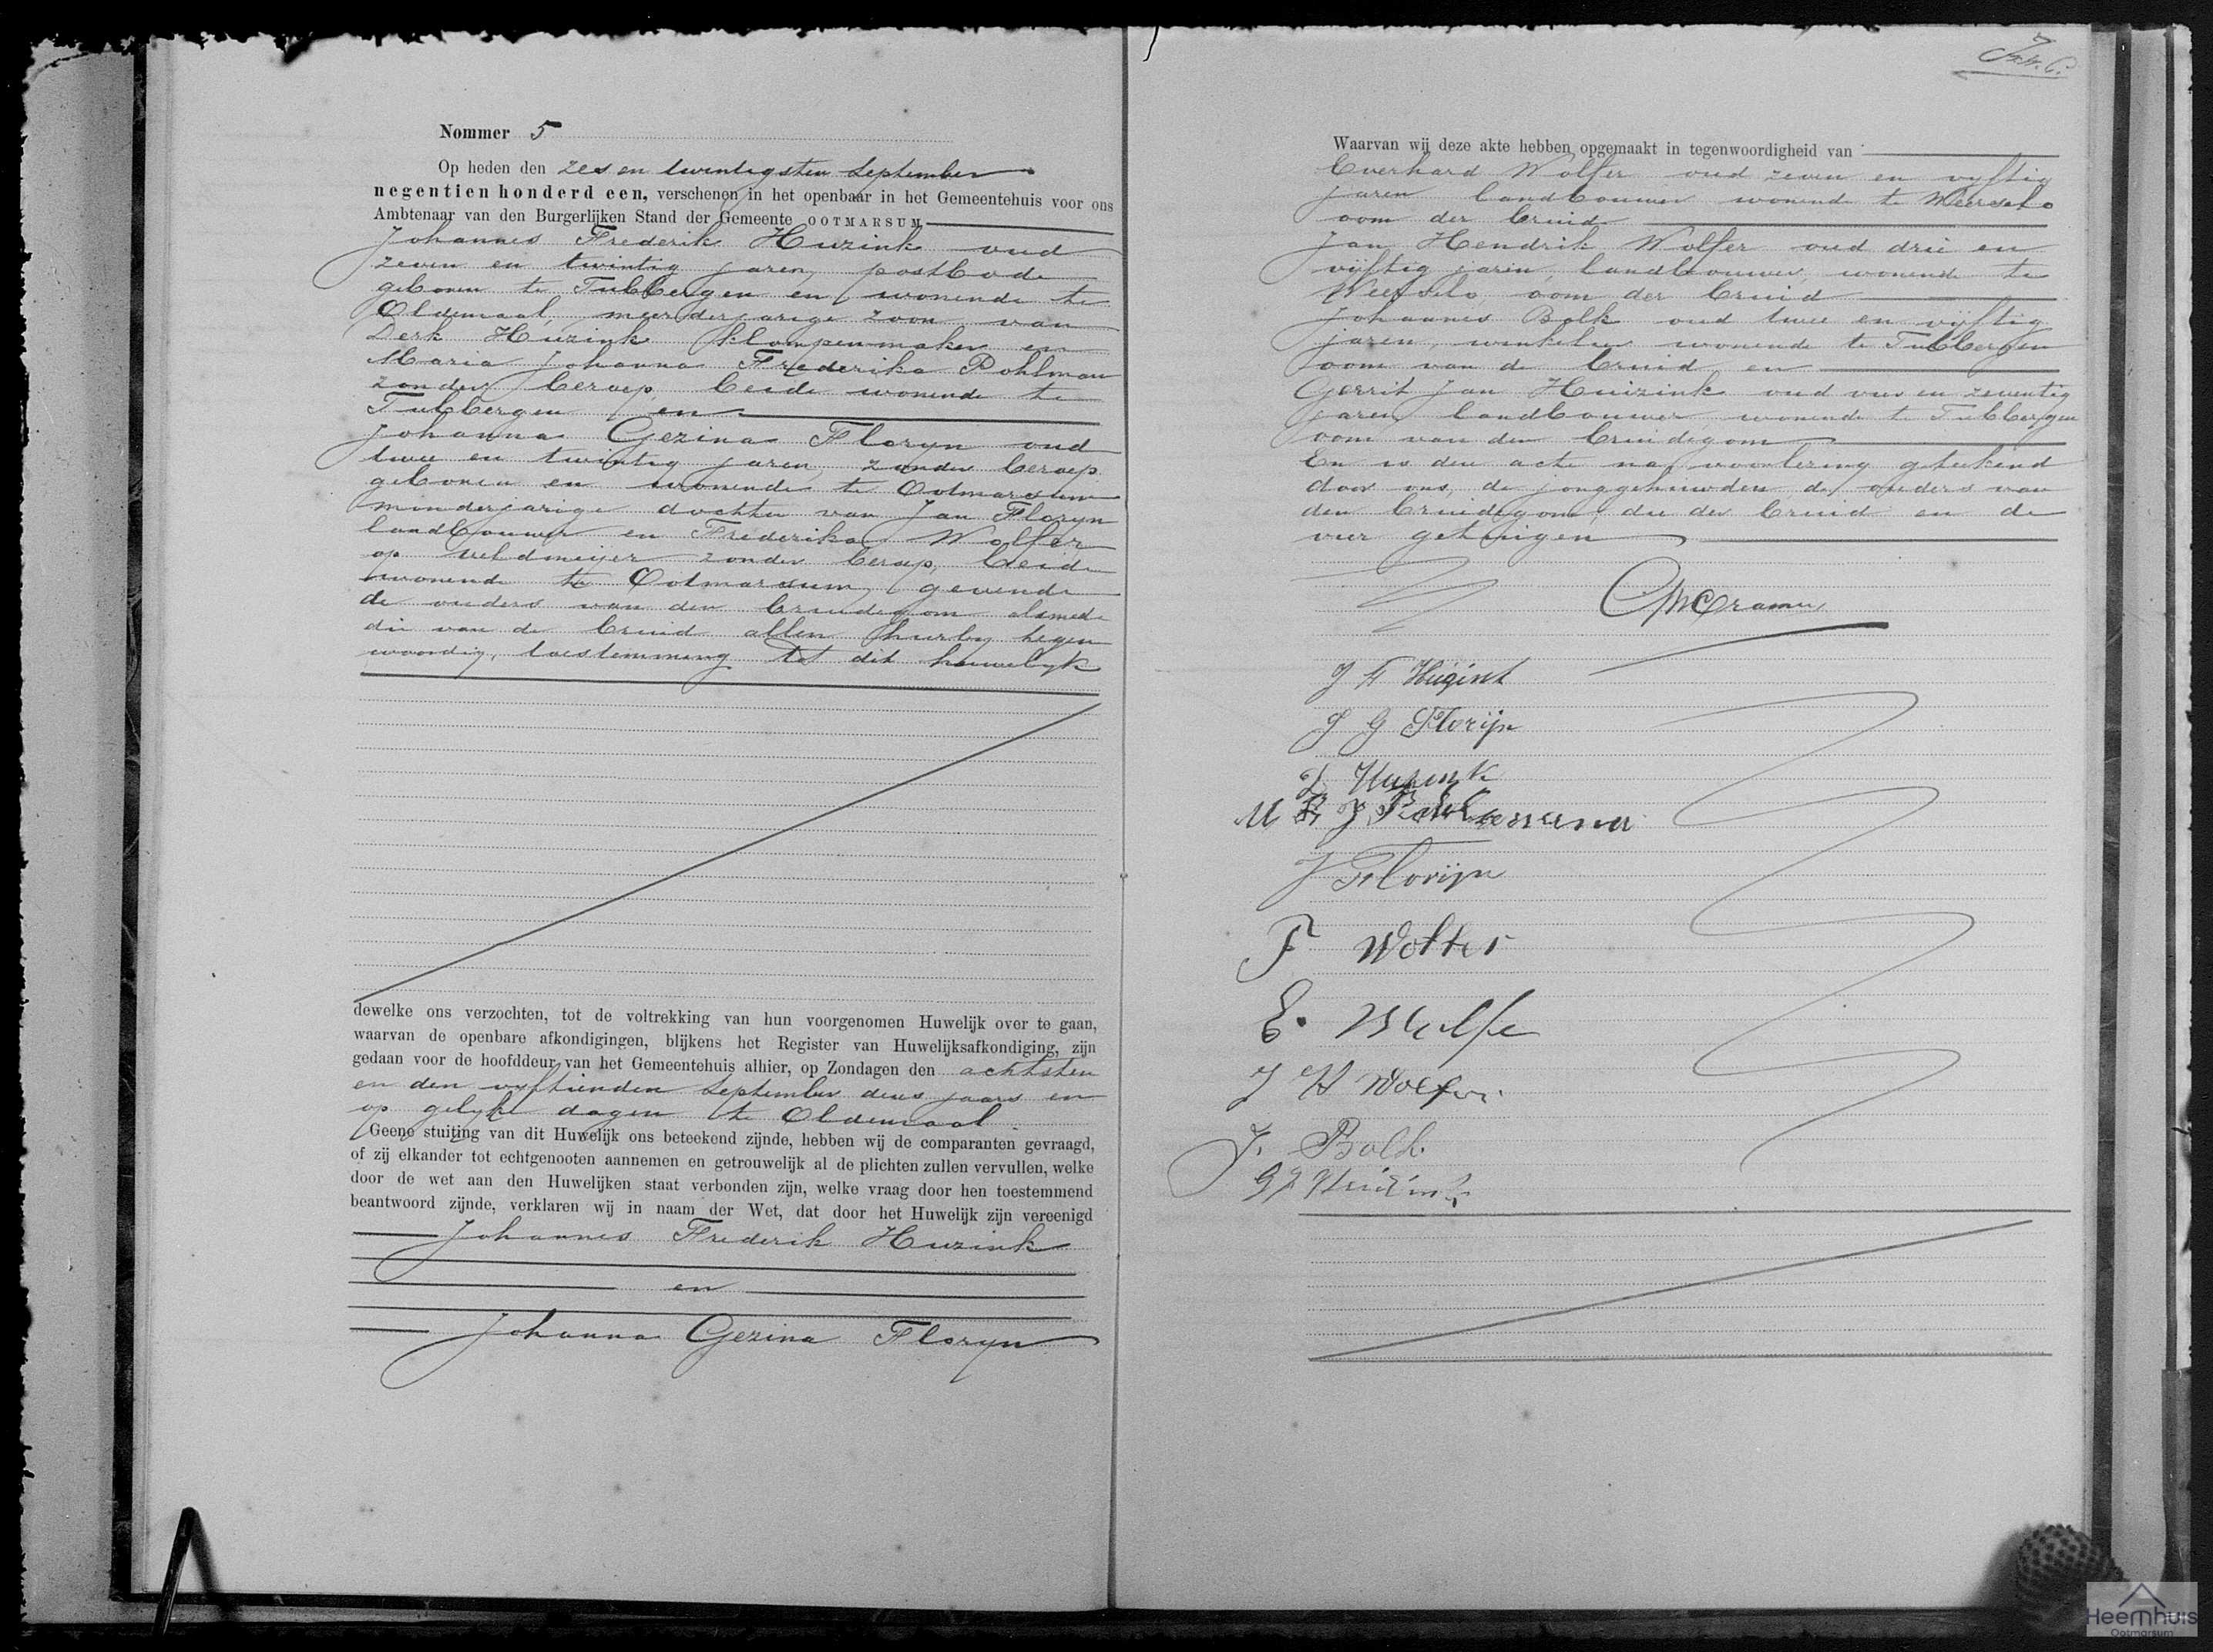 Nommer 5
Op heden den zes en twintigsten September
negentien honderd een, verschenen in het openbaar in het Gemeentehuis voor ons
Ambtenaar van den Burgerlijken Stand der Gemeente OOTMARSUM
Johannes Frederik Huzink oud
zeven en twintig jaren, postbode
geboren te Tubbergen en wonende te
Oldenzaal, meerderjarige zoon van
Derk Huzink klompenmaker en
Maria Johanna Frederika Pohlman
zonder beroep, beide wonende te
Tubbergen en
Johanna Gezina Floryn oud
twee en twintig jaren, zonder beroep
geboren en wonende te Ootmarsum
minderjarige dochter van Jan Floryn
landbouwer en Frederika Wolfer
op veldmeijer zonder beroep, beide
wonende te Ootmarsum, gevende
de ouders van den bruidegom alsmede
die van de bruid allen hierby tegen
woordig, toestemming tot dit huwelyk
dewelke ons verzochten, tot de voltrekking van hun voorgenomen Huwelijk over te gaan,
waarvan de openbare afkondigingen, blijkens het Register van Huwelijksafkondiging, zijn
gedaan voor de hoofddeur van het Gemeentehuis alhier, op Zondagen den achtsten
en den vyftienden September dezes jaars en
op gelyke dagen te Oldenzaal.
Geene stuiting van dit Huwelijk ons beteekend zijnde, hebben wij de comparanten gevraagd,
of zij elkander tot echtgenooten aannemen en getrouwelijk al de plichten zullen vervullen, welke
door de wet aan den Huwelijken staat verbonden zijn, welke vraag door hen toestemmend
beantwoord zijnde, verklaren wij in naam der Wet, dat door het Huwelijk zijn vereenigd
Johannes Frederik Huzink
en
Johanna Gezina Floryn
Waarvan wij deze akte hebben opgemaakt in tegenwoordigheid van
Everhard Wolfer oud zeven en vyftig
jaren landbouwer wonende te Weerselo
oom der bruid
Jan Hendrik Wolfer oud drie en
vijftig jaren, landbouwer, wonende te
Weerselo oom der bruid
Johannes Bolk oud twee en vijftig
jaren, winkelier wonende te Tubbergen
oom van de bruid en
Gerrit Jan Huizink oud vier en zeventig
jaren landbouwer, wonende te Tubbergen
oom van den bruidegom
En is den acte na voorlezing geteekend
door ons, de jonggehuwden, de ouders van
den bruidegom, die der bruid en de
vier getuigen
Cramer
J F Huzink
J G Florijn
D Huzink
M F J Pohlman
J Florijn
F Wolfer
E. Wolfe
J H Wolfer
J. Bolk
G J Huizink
Heemhuis
Ootmarsum